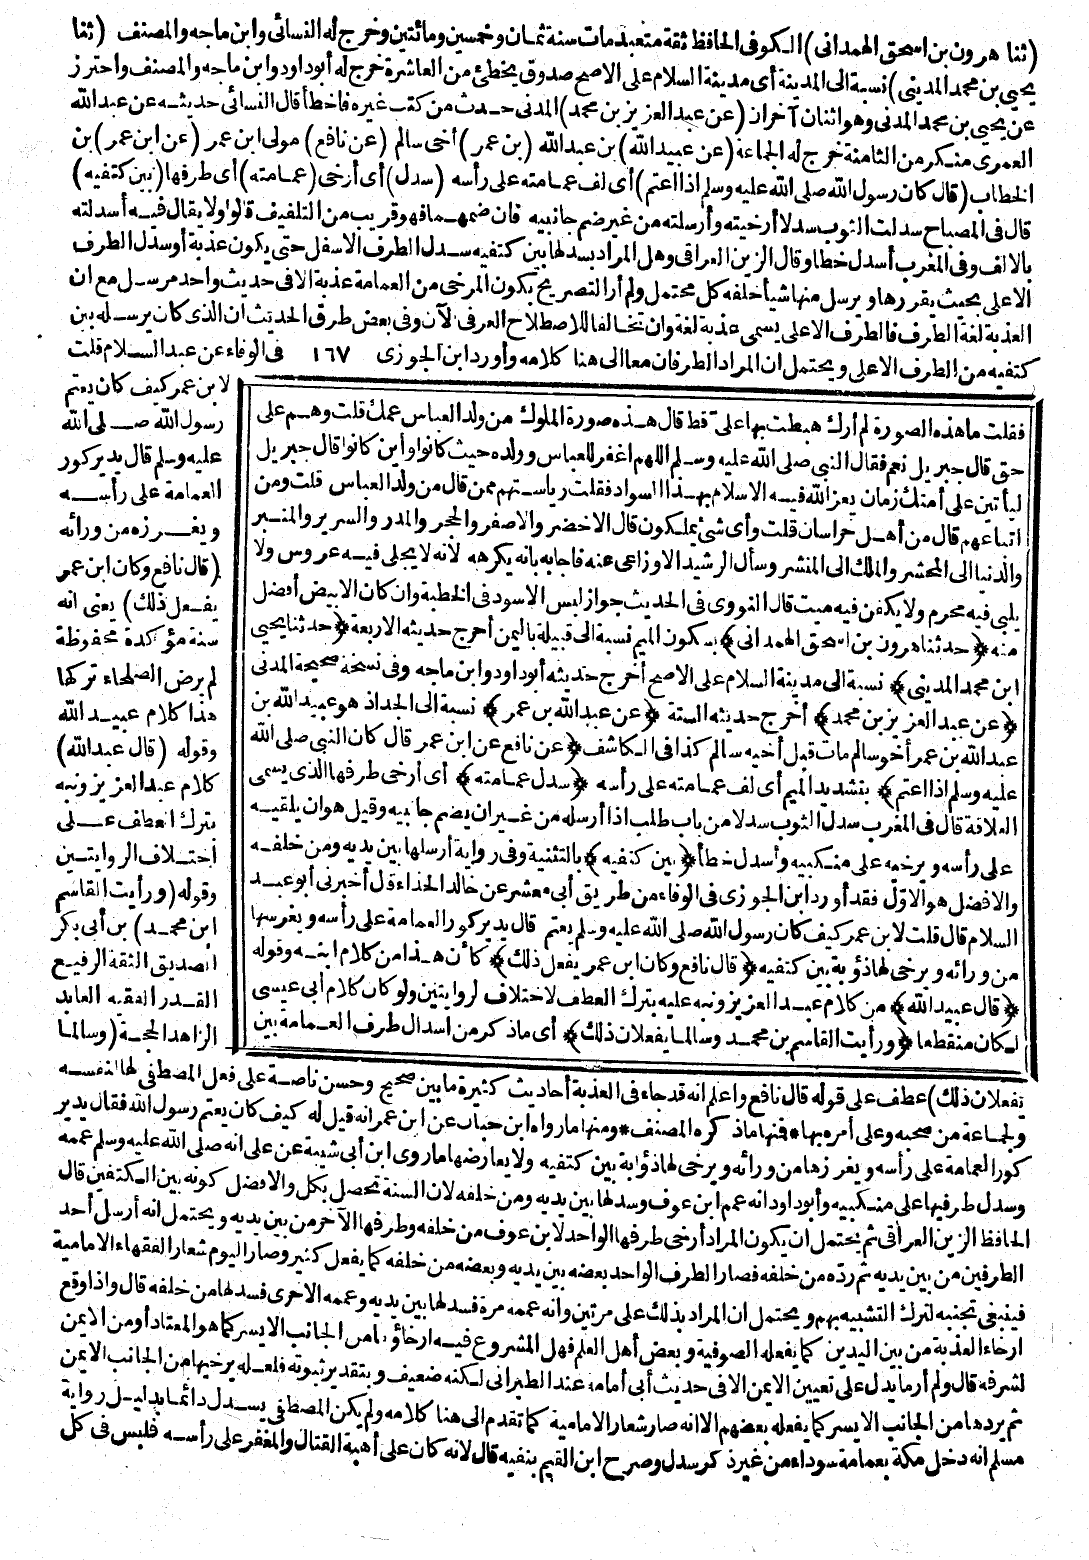 (ثنا هرون بن اسحق الهمداني) الكوفي الحافظ ثقة متعبد مات سنة ثمان وخمسين ومائتين وخرج له النسائي وابن ماجه والمصنف (ثنا
يحيى بن محمد المديني) نسبة الى المدينة أى مدينة السلام على الاصح صدوق يخطئ من العاشرة خرج له أبو داود وابن ماجه والمصنف واحترز
عن يحيى بن محمد المدنى وهو اثنان آخران (عن عبد العزيز بن محمد) المدنى حدث من كتب غيره فاخطأ قال النسائى حديثه عن عبد الله
العمرى منكر من الثامنة خرج له الجماعة (عن عبيد الله) بن عبد الله (بن عمر) أخى سالم (عن نافع) مولى ابن عمر (عن ابن عمر) بن
الخطاب (قال كان رسول الله صلى الله عليه وسلم اذا اعتم) أى لف عمامته على رأسه (سدل) أى أرخى (عمامته) أى طرفها (بين كتفيه)
قال فى المصباح سدلت الثوب سدلا أرخيته وأرسلته من غير ضم جانبيه فان ضمهما فهو قريب من التلفيف قالوا ولا يقال فيه أسدلته
بالالف وفى المغرب أسدل خطا وقال الزين العراقى وهل المراد بسدلها بين كتفيه سدل الطرف الاسفل حتى يكون عذبة أو سدل الطرف
الاعلى بحيث يغرزها ويرسل منها شيأ خلفه كل محتمل ولم أر التصريح بكون المرخى من العمامة عذبة الا فى حديث واحد مرسل مع ان
العذبة لغة الطرف فالطرف الاعلى يسمى عذبة لغة وان تخالفا للاصطلاح العرفى الآن وفى بعض طرق الحديث ان الذى كان يرسله بين
كتفيه من الطرف الاعلى ويحتمل ان المراد الطرفان معا الى هنا كلامه وأورد ابن الجوزى ١٦٧ فى الوفاء عن عبد السلام قلت
لابن عمر كيف كان يعتم
رسول الله صلى الله
عليه وسلم قال يدير كور
العمامة على رأسه
ويغرزه من ورائه
(قال نافع وكان ابن عمر
يفعل ذلك) يعنى انه
سنة مؤكدة محفوظة
لم يرض الصلحاء تركها
هذا كلام عبيد الله
وقوله (قال عبد الله)
كلام عبد العزيز ونبه
بترك العطف على
اختلاف الروايتين
وقوله (ورأيت القاسم
ابن محمد) بن أبى بكر
الصديق الثقة الرفيع
القدر الفقيه العابد
الزاهد الحجة (وسالما
فقلت ما هذه الصورة لم أرك هبطت بها على قط قال هذه صورة الملوك من ولد العباس عمك قلت وهم على
حق قال جبريل نعم فقال النبى صلى الله عليه وسلم اللهم اغفر للعباس وولده حيث كانوا وأين كانوا قال جبريل
ليأتين على أمتك زمان يعز الله فيه الاسلام بهذا السواد فقلت رياستهم ممن قال من ولد العباس قلت ومن
اتباعهم قال من أهل خراسان قلت وأى شئ يملكون قال الاخضر والاصفر والحجر والمدر والسرير والمنبر
والدنيا الى المحشر والملك الى المنشر وسأل الرشيد الاوزاعى عنه فاجابه بانه يكرهه لانه لا يجلى فيه عروس ولا
يلبى فيه محرم ولا يكفن فيه ميت قال النووى فى الحديث جواز لبس الاسود فى الخطبة وان كان الابيض أفضل
منه ﴿حدثنا هرون بن اسحق الهمدانى﴾ بسكون الميم نسبة الى قبيلة باليمن أخرج حديثه الاربعة ﴿حدثنا يحيى
ابن محمد المدينى﴾ نسبة الى مدينة السلام على الاصح أخرج حديثه أبو داود وابن ماجه وفى نسخة صحيحة المدنى
﴿عن عبد العزيز بن محمد﴾ أخرج حديثه الستة ﴿عن عبد الله بن عمر﴾ نسبة الى الجد اذ هو عبيد الله بن
عبد الله بن عمر أخو سالم مات قبل أخيه سالم كذا فى الكاشف ﴿عن نافع عن ابن عمر قال كان النبى صلى الله
عليه وسلم اذا اعتم﴾ بتشديد الميم أى لف عمامته على رأسه ﴿سدل عمامته﴾ أى أرخى طرفها الذى يسمى
العلاقة قال فى المغرب سدل الثوب سدلا من باب طلب اذا أرسله من غير ان يضم جانبيه وقيل هو ان يلقيه
على رأسه ويرخيه على منكبيه وأسدل خطأ ﴿بين كتفيه﴾ بالتثنية وفى رواية أرسلها بين يديه ومن خلفه
والافضل هو الاول فقد أورد ابن الجوزى فى الوفاء من طريق أبى معشر عن خالد الحذاء قال أخبرنى أبو عبد
السلام قال قلت لابن عمر كيف كان رسول الله صلى الله عليه وسلم يعتم قال يدير كور العمامة على رأسه ويغرسها
من ورائه ويرخى لها ذؤابة بين كتفيه ﴿قال نافع وكان ابن عمر يفعل ذلك﴾ كأن هذا من كلام ابنه وقوله
﴿قال عبيد الله﴾ من كلام عبد العزيز ونبه عليه بترك العطف لاختلاف الروايتين ولو كان كلام أبى عيسى
لكان منقطعا ﴿ورأيت القاسم بن محمد وسالما يفعلان ذلك﴾ أى ما ذكر من اسدال طرف العمامة بين
يفعلان ذلك) عطف على قوله قال نافع واعلم انه قد جاء فى العذبة أحاديث كثيرة ما بين صحيح وحسن ناصة على فعل المصطفى لها لنفسه
ولجماعة من صحبه وعلى أمره بها * فمنها ما ذكره المصنف * ومنها ما رواه ابن حبان عن ابن عمر انه قيل له كيف كان يعتم رسول الله فقال يدير
كور العمامة على رأسه ويغرزها من ورائه ويرخى لها ذؤابة بين كتفيه ولا يعارضها ما روى ابن أبى شيبة عن على انه صلى الله عليه وسلم عممه
وسدل طرفيها على منكبيه وأبو داود انه عمم ابن عوف وسدلها بين يديه ومن خلفه لان السنة تحصل بكل والافضل كونه بين الكتفين قال
الحافظ الزين العراقى ثم يحتمل ان يكون المراد أرخى طرفها الواحد لابن عوف من خلفه وطرفها الآخر من بين يديه ويحتمل انه أرسل أحد
الطرفين من بين يديه ثم رده من خلفه فصار الطرف الواحد بعضه بين يديه وبعضه من خلفه كما يفعل كثير وصار اليوم شعار الفقهاء الامامية
فينبغى تجنبه لترك التشبيه بهم ويحتمل ان المراد بذلك على مرتين وانه عممه مرة فسدلها بين يديه وعممه الاخرى فسدلها من خلفه قال واذا وقع
ارخاء العذبة من بين اليدين كما يفعله الصوفية وبعض أهل العلم فهل المشروع فيه ارخاؤها من الجانب الايسر كما هو المعتاد أو من الايمن
لشرفه قال ولم أر ما يدل على تعيين الايمن الا فى حديث أبى أمامة عند الطبرانى لكنه ضعيف وبتقدير ثبوته فلعله يرخيها من الجانب الايمن
ثم يردها من الجانب الايسر كما يفعله بعضهم الا انه صار شعار الامامية كما تقدم الى هنا كلامه ولم يكن المصطفى يسدل دائما بدليل رواية
مسلم انه دخل مكة بعمامة سوداء من غير ذكر سدل وصرح ابن القيم بنفيه قال لانه كان على أهبة القتال والمغفر على رأسه فلبس فى كل